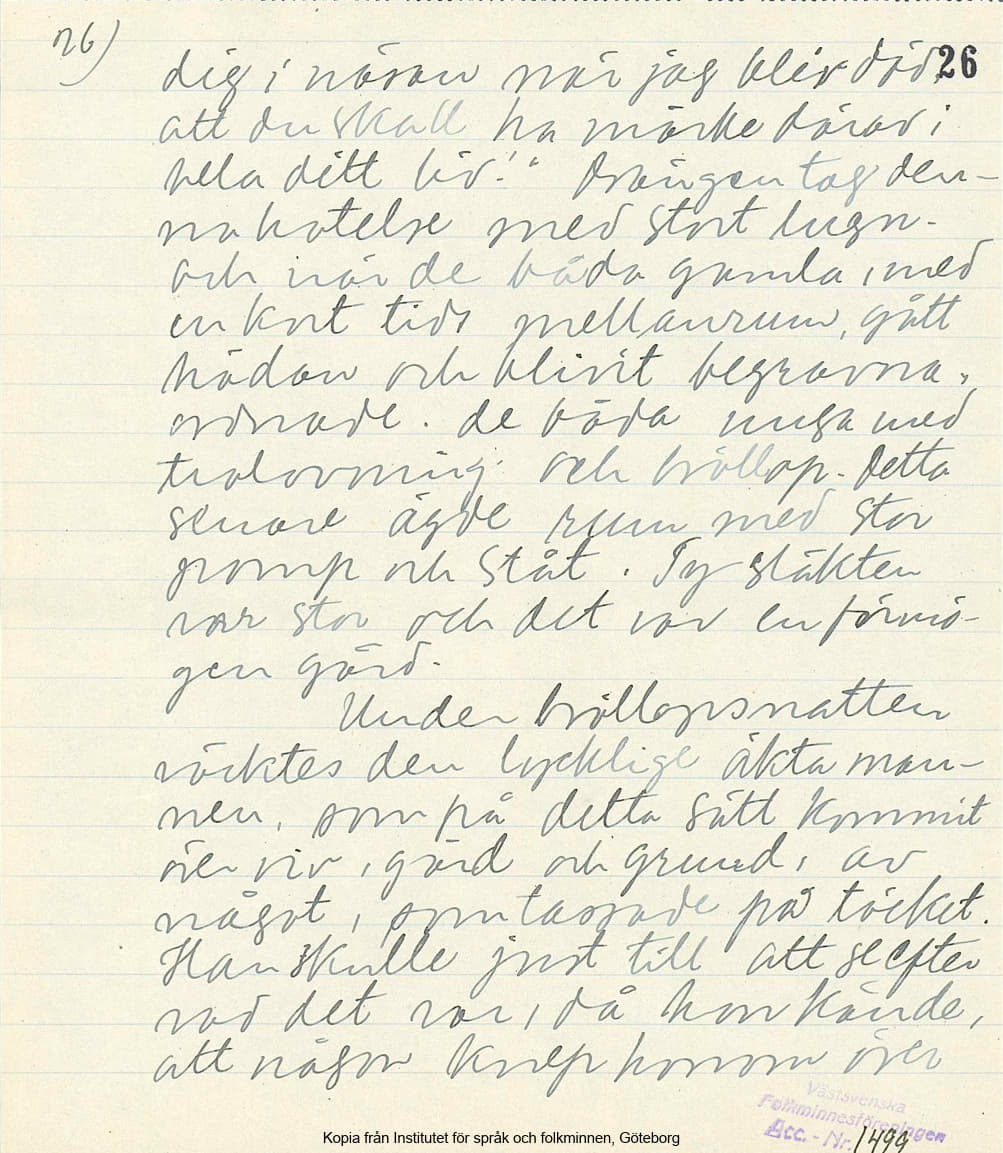 26)
26
dig i näsan när jag blir död,
att du skall ha märke därav i
hela ditt liv!" Drängen tog den-
na hotelse med stort lugn.
och när de båda gamla, med
en kort tids mellanrum, gått
hädan och blivit begravna,
ordnade. de båda unga med
trolovning och bröllop. Detta
senare ägde rum med stor
pomp och ståt. Ty släkten
var stor och det var en förmö-
gen gård.
Under bröllopsnatten
väcktes den lycklige äkta man-
nen, som på detta sätt kommit
över viv, gård och grund, av
något, som tassade på täcket.
Han skulle just till att se efter
vad det var, då han kände,
att någon knep honom över
Västsvenska
Folkminnesföreningen
Acc. - Nr. 1499
Kopia från Institutet för språk och folkminnen, Göteborg